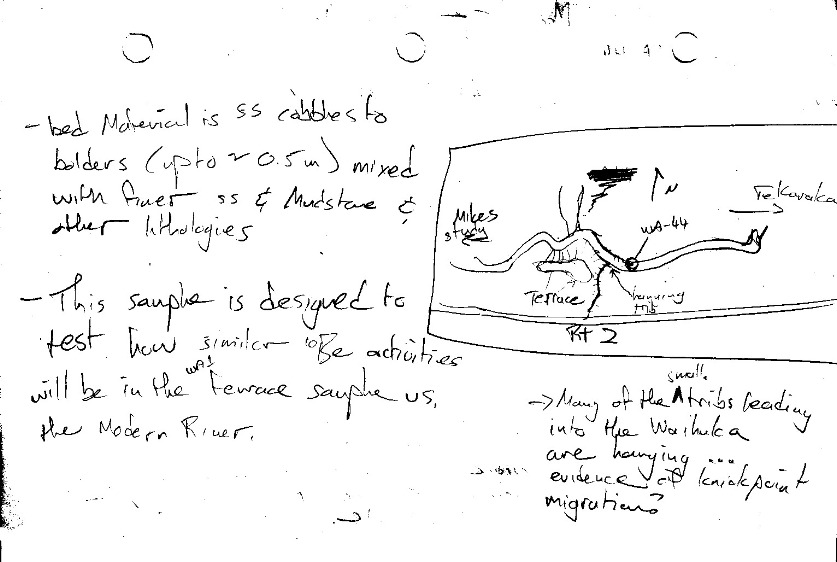 - bed Material is ss cobbles to
bolders (up to ~ 0.5m) mixed
with finer ss & Mudstone &
other lithologies
- This sample is designed to
test how similar ¹⁰Be activities
will be in the WA1 terrace sample vs.
the Modern River.
N
Te Karaka
Mikes
study
WA-44
Terrace
hanging
trib
Rt 2
→ Many of the small tribs leading
into the Waihuka
are hanging ...
evidence of knickpoint
migration?